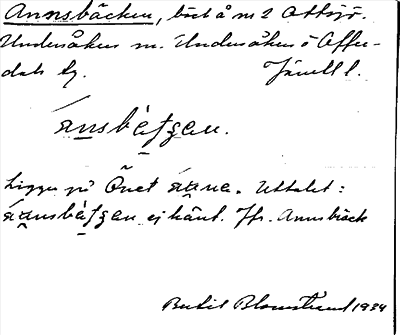 Annsbäcken, bäck å nr 2 Ottsjö.
Undersåkers sn. Undersåkers o Offer-
dals tg. Jämtl l.
ánsbä̀ʃʒən.
Ligger på Önet Uttalet:
ej känt. Jfr. Annsbäck
Bertil Blomstrand 1934